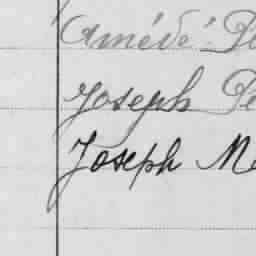 Amédé Pe
Joseph Pe
Joseph Me